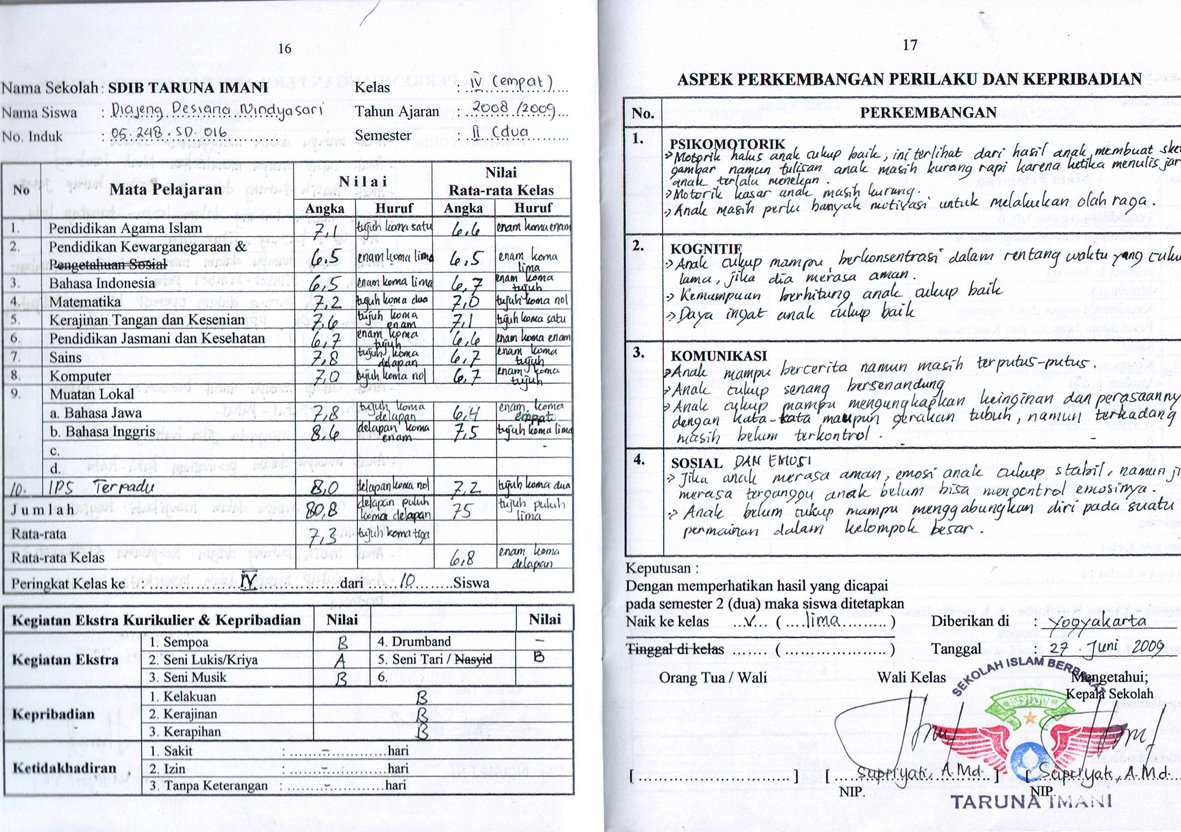 16
Nama Sekolah : SDIB TARUNA IMANI Kelas : IV (empat)
Nama Siswa : Diajeng Desiana Nindyasari Tahun Ajaran : 2008/2009
No. Induk : 05.248.SD.016 Semester : II (dua
No Mata Pelajaran Nilai Nilai Rata-rata Kelas
Angka Huruf Angka Huruf
1. Pendidikan Agama Islam 7,1 tujuh koma satu 6,6 enam koma enam
2. Pendidikan Kewarganegaraan & Pengetahuan Sosial 6,5 enam koma lima 6,5 enam koma lima
3. Bahasa Indonesia 6,5 enam koma lima 6,7 enam koma tujuh
4. Matematika 7,2 tujuh koma dua 7,0 tujuh koma nol
5. Kerajinan Tangan dan Kesenian 7,6 tujuh koma enam 7,1 tujuh koma satu
6. Pendidikan Jasmani dan Kesehatan 6,7 enam koma tujuh 6,6 enam koma enam
7. Sains 7,8 tujuh koma delapan 6,7 enam koma tujuh
8. Komputer 7,0 tujuh koma nol 6,7 enam koma tujuh
9. Muatan Lokal
a. Bahasa Jawa 7,8 tujuh koma delapan 6,4 enam koma empat
b. Bahasa Inggris 8,6 delapan koma enam 7,5 tujuh koma lima
c. -
d.
10. IPS Terpadu 8,0 delapan koma nol 7,2 tujuh koma dua
Jumlah 80,8 delapan puluh koma delapan 75 tujuh puluh lima
Rata-rata 7,3 tujuh koma tiga
Rata-rata Kelas 6,8 enam koma delapan
Peringkat Kelas ke : IV dari 10 Siswa
Kegiatan Ekstra Kurikulier & Kepribadian Nilai Nilai
Kegiatan Ekstra 1. Sempoa B 4. Drumband -
2. Seni Lukis/Kriya A 5. Seni Tari / Nasyid B
3. Seni Musik B 6.
Kepribadian 1. Kelakuan B
2. Kerajinan B
3. Kerapihan B
Ketidakhadiran 1. Sakit : - hari
2. Izin : - hari
3. Tanpa Keterangan : - hari
17
ASPEK PERKEMBANGAN PERILAKU DAN KEPRIBADIAN
No. PERKEMBANGAN
1. PSIKOMOTORIK
Motorik halus anak cukup baik, ini terlihat dari hasil anak membuat
gambar namun tulisan anak masih kurang rapi karena ketika menulis
anak terlalu menekan.
Motorik kasar anak masih kurang.
Anak masih perlu banyak motivasi untuk melakukan olah raga.
2. KOGNITIF
Anak cukup mampu berkonsentrasi dalam rentang waktu yang
lama, jika dia merasa aman.
Kemampuan berhitung anak cukup baik
Daya ingat anak cukup baik
3. KOMUNIKASI
Anak mampu bercerita namun masih terputus-putus.
Anak cukup senang bersenandung
Anak cukup mampu mengungkapkan keinginan dan perasaanny
dengan kata-kata maupun gerakan tubuh, namun terkadang
masih belum terkontrol.
4. SOSIAL DAN EMOSI
Jika anak merasa aman, emosi anak cukup stabil, namun
merasa terganggu anak belum bisa mengontrol emosinya.
Anak belum cukup mampu menggabungkan diri pada suatu
permainan dalam kelompok besar.
Keputusan :
Dengan memperhatikan hasil yang dicapai
pada semester 2 (dua) maka siswa ditetapkan
Naik ke kelas V (lima) Diberikan di : Yogyakarta
Tinggal di kelas ....... (....................) Tanggal : 27 Juni 2009
Orang Tua / Wali Wali Kelas Mengetahui;
Kepala Sekolah
[........................] [Supriyati, A.Md.] [Supriyati, A.Md.
NIP. NIP.
SEKOLAH ISLAM
TARUNA IMANI